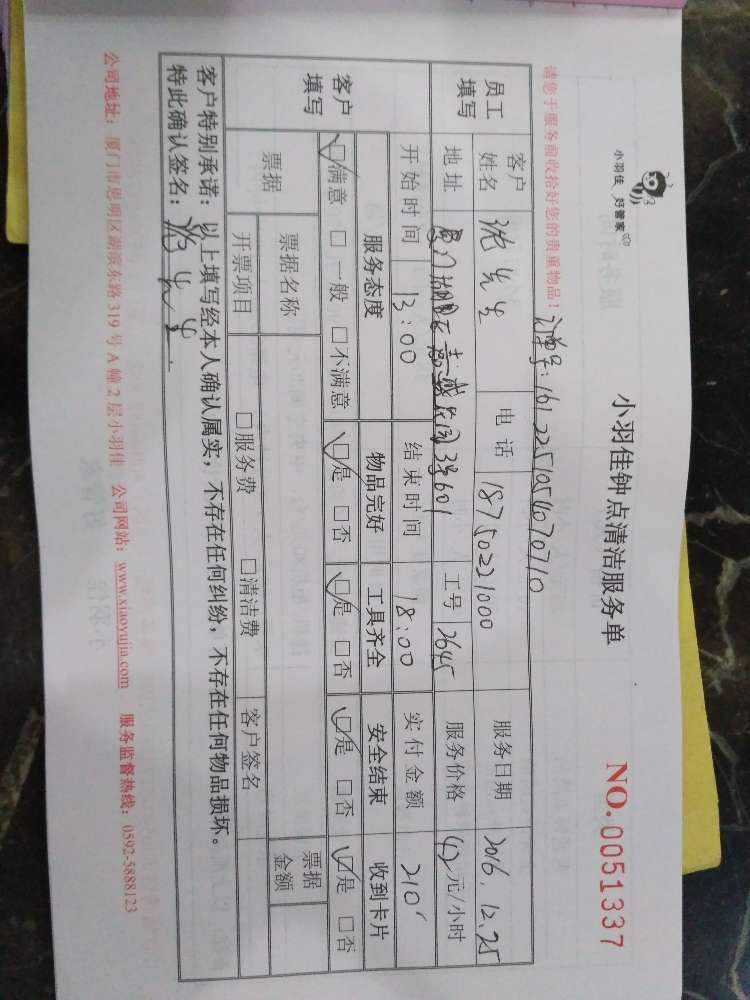 小羽佳 好管家
小羽佳钟点清洁服务单
NO.0051337
请您于服务前收拾好您的贵重物品!
订单号:1612251054070710
员工填写
客户姓名 沈先生 电话 18750221000 服务日期 2016.12.25
地址 3号601 工号 2645 服务价格 42元/小时
开始时间 13:00 结束时间 18:00 实付金额 210
客户填写
服务态度 物品完好 工具齐全 安全结束 收到卡片
☑满意 □一般 □不满意 ☑是 □否 ☑是 □否 ☑是 □否 ☑是 □否
票据 票据名称 票据金额
开票项目 □服务费 □清洁费 客户签名
客户特别承诺:以上填写经本人确认属实,不存在任何纠纷,不存在任何物品损坏。
特此确认签名:
公司地址:厦门市思明区湖滨东路319号A幢2层小羽佳 公司网站:www.xiaoyujia.com 服务监督热线:0592-5888123